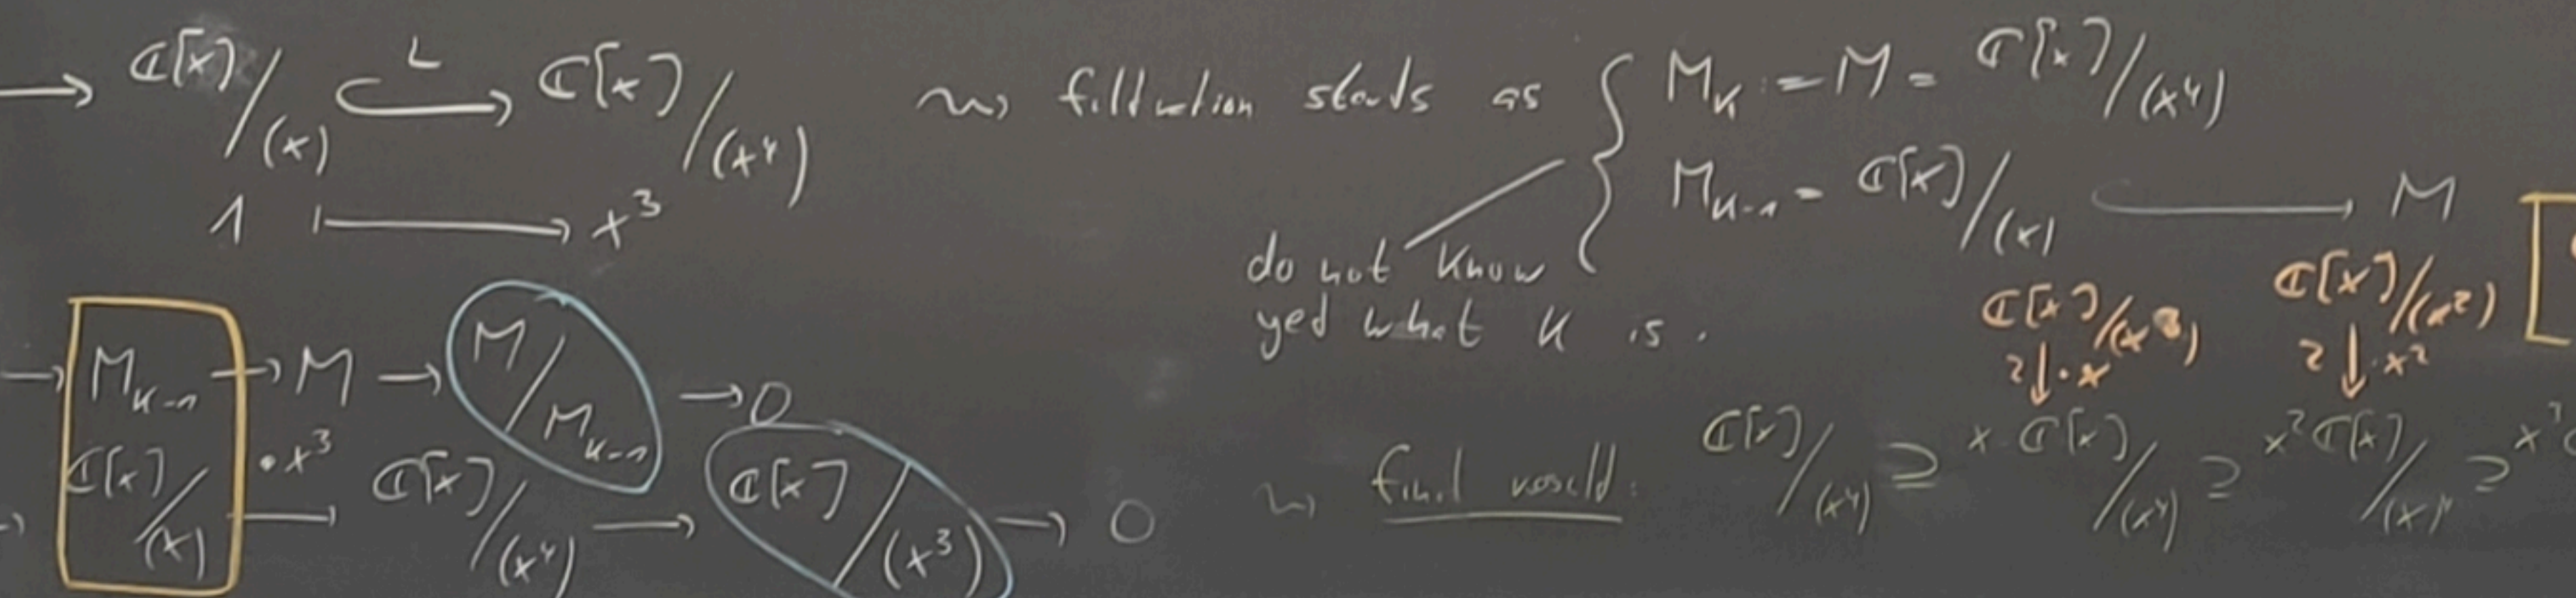 → ℂ[x]/(x) ↪ ℂ[x]/(x⁴) ⇝ filtration starts as { M_K := M = ℂ[x]/(x⁴)
L
1 ↦ x³
M_{K-1} = ℂ[x]/(x) ↪ M
do not know
yed what K is.
→ M_{K-1} → M → M/M_{K-1} → 0
ℂ[x]/(x) → ℂ[x]/(x⁴) → ℂ[x]/(x³) → 0
·x³
ℂ[x]/(x³) ℂ[x]/(x²)
≀↓·x ≀↓·x²
⇝ final result: ℂ[x]/(x⁴) ⊇ x·ℂ[x]/(x⁴) ⊇ x²ℂ[x]/(x)⁴ ⊇ x³